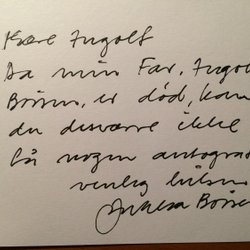 Kære Ingolf
Da min Far, Ingolf
Boisen, er død, kan
du desværre ikke
få nogen autograf
venlig hilsen
Boisen